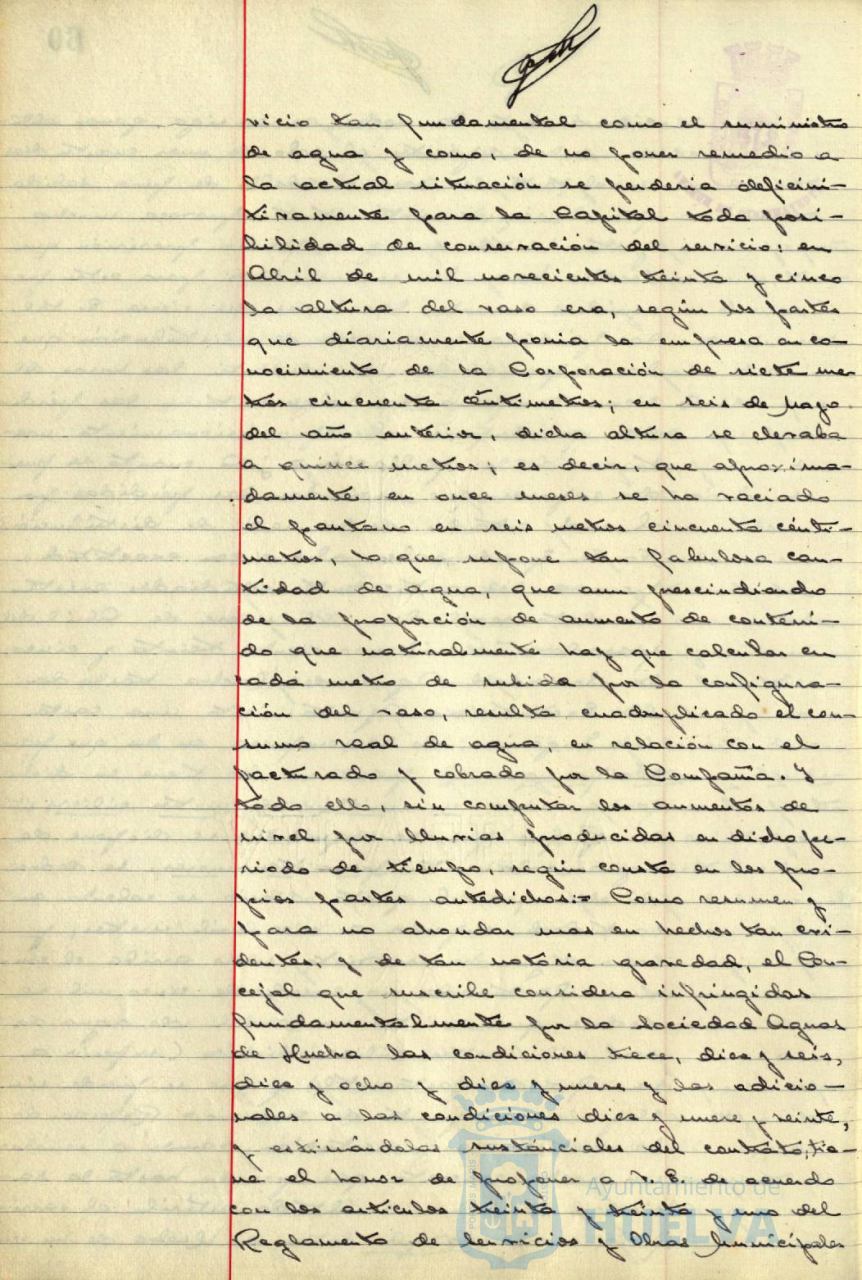 vicio tan fundamental como el suministro
de agua y como, de no poner remedio a
la actual situación se perderia deficini-
tivamente para la Capital toda posi-
bilidad de conservación del servicio: en
Abril de mil novecientos treinta y cinco
la altura del vaso era, según los partes
que diariamente ponia la empresa en co-
nocimiento de la Corporación de siete me-
tros cincuenta céntimetros; en seis de Mayo
del año anterior, dicha altura se elevaba
a quince metros; es decir, que aproxima-
damente en once meses se ha vaciado
el pantano en seis metros cincuenta cénti-
metros, lo que supone tan fabulosa can-
tidad de agua, que aun prescindiendo
de la proporción de aumento de conteni-
do que naturalmente hay que calcular en
cada metro de subida por la configura-
ción del vaso, resulta cuadruplicado el con-
sumo real de agua, en relación con el
facturado y cobrado por la Compañia. Y
todo ello, sin computar los aumentos de
nivel por lluvias producidas en dicho pe-
riodo de tiempo, según consta en los pro-
pios partes antedichos:= Como resumen y
para no ahondar mas en hechos tan evi-
dentes, y de tan notoria gravedad, el Con-
cejal que suscribe considera infringidas
fundamentalmente por la Sociedad Aguas
de Huelva las condiciones trece, diez y seis,
diez y ocho y diez y nueve y las adicio-
nales a las condiciones diez y nueve y veinte,
y estimándolas sustanciales del contrato, tie-
ne el honor de proponer a V. E. de acuerdo
con los articulos treinta y treinta y uno del
Reglamento de Servicios y Obras Municipales
Ayuntamiento de
HUELVA